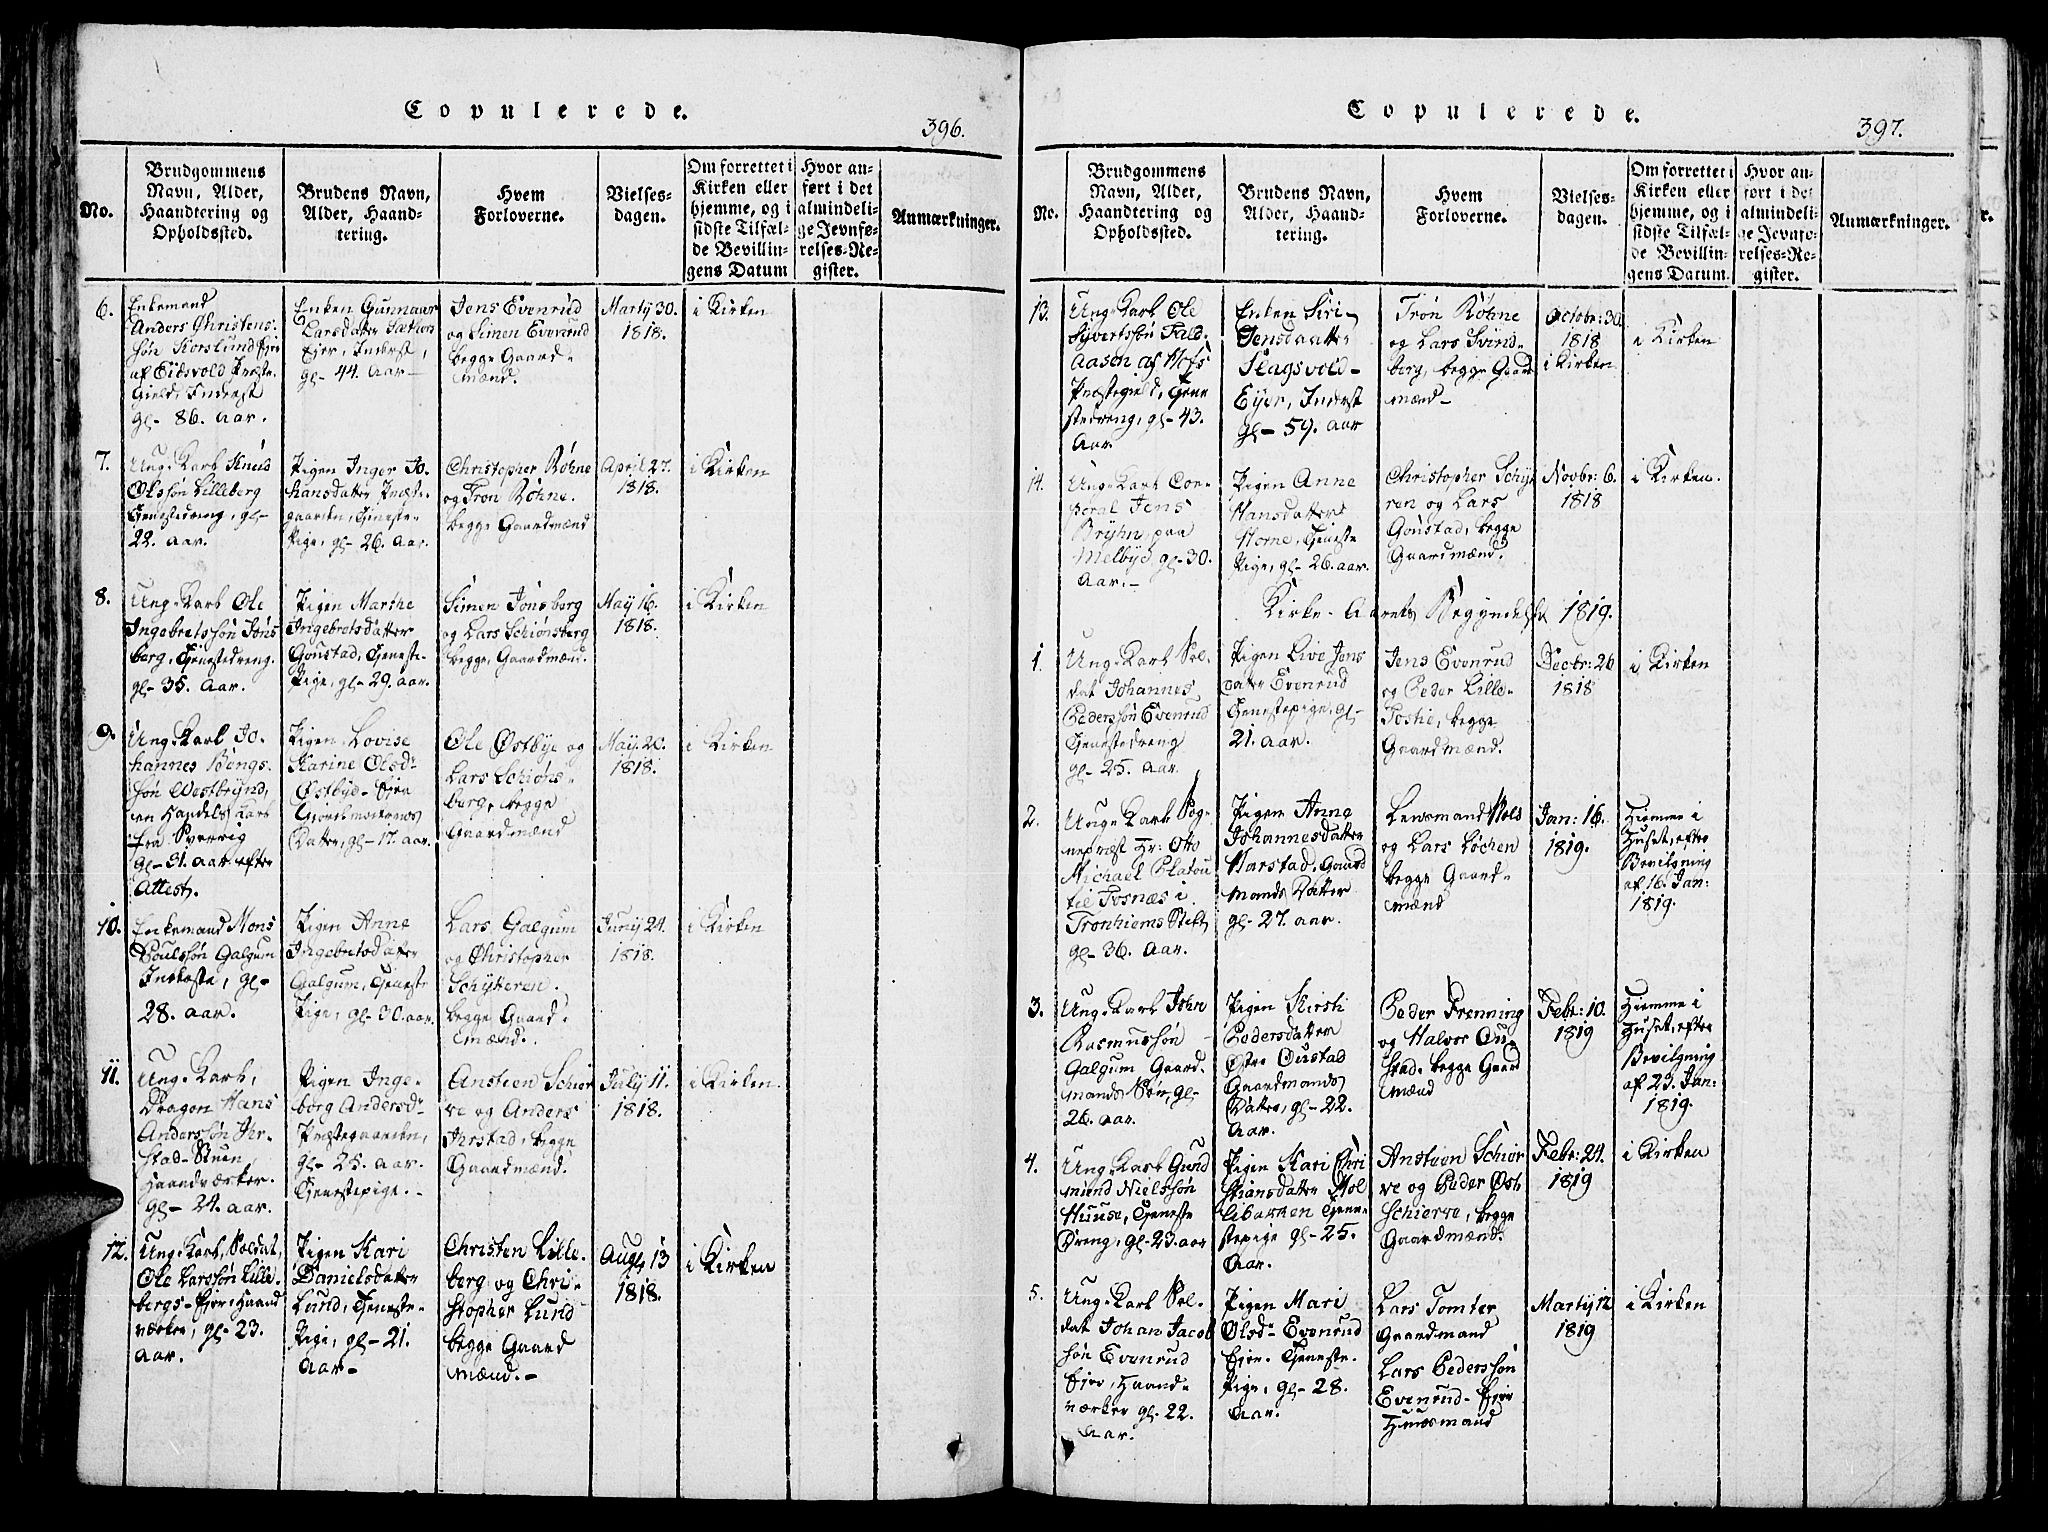 Copulerede.
396.
No.
Brudgommens
Navn, Alder,
Haandtering og
Opholdssted.
Brudens Navn,
Alder, Haand-
tering.
Hvem
Forloverne.
Vielses-
dagen.
Om forrettet i
Kirken eller
hjemme, og i
sidste Tilfæl-
de Bevillin-
gens Datum
Hvor an-
ført i det
almindeli-
ge Jevnfø-
relses-Re-
gister.
Anmærkninger.
6.
Enkemand
Anders Christens-
søn Korslund
af Eidsvold Præste-
Gield, Inderst
gl- 86. Aar.
Enken Gunnaur
Larsdatter
Ejer, Inderst,
gl- 44. Aar-
Jens Evenrud
og Simen Evenrud
begge Gaard-
mænd.
Marty 30.
1818.
i Kirken
7.
Ung-Karl Knud
Olssøn Lilleberg
Tienestedreng, gl-
22. Aar.
Pigen Inger Jo-
hansdatter Præste-
gaarden, Tieneste-
Pige, gl- 26. Aar.
Christopher Røhne
og Tron Røhne.
begge Gaardmænd
April 27.
1818.
i Kirken
8.
Ung-Karl Ole
Ingebretssøn Jøns
berg, Tienestedreng.
gl- 35. Aar.
Pigen Marthe
Ingebretsdatter
Goustad, Tieneste-
Pige, gl- 29. Aar.
Simen Jønsberg
og Lars Schiønsberg
begge, Gaardmænd.
May 16.
1818.
i Kirken
9.
Ung-Karl Jo-
hannes Bengs-
søn Westbrynd,
en Handels Karl
fra Sverrig
gl- 31. Aar efter
Attest.
Pigen Lovise
Karine Olsdr
Østbye-
Datter, gl- 17. Aar.
Ole Østbye og
Lars Schiøns-
berg, begge
Gaardmænd
May. 20.
1818.
i Kirken
10.
Enkemand Mons
Poulssøn Galgum
Inderste, gl-
28. Aar.
Pigen Anne
Ingebretsdatter
Galgum, Tieneste
Pige, gl- 30. Aar.
Lars Galgum
og Christopher
Schytteren.
begge Gaard-
mænd.
Juny 24.
1818.
i Kirken
11.
Ung-Karl,
Dragon Hans
Anderssøn Ihr-
stad-Stuen,
Haandværker.
gl- 24. Aar.
Pigen Inge-
borg Andersdr
Præstegaarden,
gl- 25. Aar.
Tienestepige.-
Ansteen Schier
ve og Anders
Ihrstad, begge
Gaardmænd.
July 11.
1818.
i Kirken.
12.
Ung-Karl, Soldat,
Ole Larssøn Lille-
bergs-Ejer, Haand
værker, gl- 23.
Aar.
Pigen Kari
Danielsdatter
Lund, Tieneste-
Pige, gl- 21.
Aar-
Christen Lille-
berg og Chri-
stopher Lund
begge Gaard
mænd.-
Aug. 13
1818.
i Kirken
Copulerede.
397.
No.
Brudgommens
Navn, Alder,
Haandtering og
Opholdssted.
Brudens Navn,
Alder, Haand-
tering.
Hvem
Forloverne.
Vielses-
dagen.
Om forrettet i
Kirken eller
hjemme, og i
sidste Tilfæl-
de Bevillin-
gens Datum.
Hvor an-
ført i det
almindeli-
ge Jevnfø-
relses-Re-
gister.
Anmærkninger.
13.
Ung-Karl Ole
Syvertssøn Fald-
aasen af Hofs
Præstegield, Tiene
stedreng, gl- 43.
Aar
Enken Siri-
Jensdatter
Slagsvold-
Ejer, Inderst
gl- 59. Aar
Tron Røhne
og Lars Svind-
berg, begge Gaard
mænd-
Octobr: 30.
1818
i Kirken
i Kirken
14.
Ung-Karl Cor-
poral Jens
Bryhn paa
Melbye, gl- 30.
Aar.-
Pigen Anne
Hansdatter
Horne, Tieneste
Pige, gl- 26. Aar.
Christopher Schyt
ren og Lars
Goustad, begge
Gaardmænd.
Novbr: 6.
1818
i Kirken.
Kirke-Aarets Begyndelse 1819.
1.
Ung-Karl Sol-
dat Johannes
Pederssøn Evenrud
Tienestedreng
gl- 25. Aar.
Pigen Live Jens
datter Evenrud
Tienestepige, gl-
21. Aar.
Jens Evenrud
og Peder Lille-
Postie, begge
Gaardmænd.
Decbr: 26
1818
i Kirken
2.
Ung-Karl Sog-
nepræst Hr: Otto
Michael Platou
til Fosnæs i
Tronhiems Stift
gl- 36. Aar.
Pigen Anne
Johannesdatter
Harstad, Gaard
mands Datter
gl- 27. Aar.
Lensmand Hols
og Lars Løchen
begge Gaard-
mænd
Jan: 16.
1819.
Hiemme i
Huset, efter
Bevilgning
af 16. Jan:
1819.
3.
Ung-Karl John
Rasmussøn
Galgum Gaard-
mands Søn, gl-
26. Aar.
Pigen Kirsti
Pedersdatter
Østre Oustad
Gaardmands
Datter, gl- 22.
Aar.
Peder Frenning
og Halvor Ou-
stad. begge Gaard
mænd
Febr: 10.
1819
Hiemme i
Huset, efter
Bevilgning
af 23. Jan:
1819.
4.
Ung-Karl Gud
mund Nielssøn
Huuse, Tieneste
Dreng, gl- 23. Aar
Pigen Kari Chri
stiansdatter Mol
libakken Tiene-
stepige gl- 25.
Aar.
Ansteen Schier
ve og Peder Øst
Schierve, begge
Gaardmænd.
Febr: 24.
1819
i Kirken
5.
Ung-Karl Sol-
dat Johan Jacob
søn Evenrud
Ejer, Haand-
værker gl- 22.
Aar.
Pigen Mari
Olsdr Evenrud
Ejer. Tieneste-
Pige, gl- 28.
Aar.
Lars Tomter
Gaardmand
Lars Pederssøn
Evenrud-Ejer
Huusmand
Marty 12
1819
i Kirken